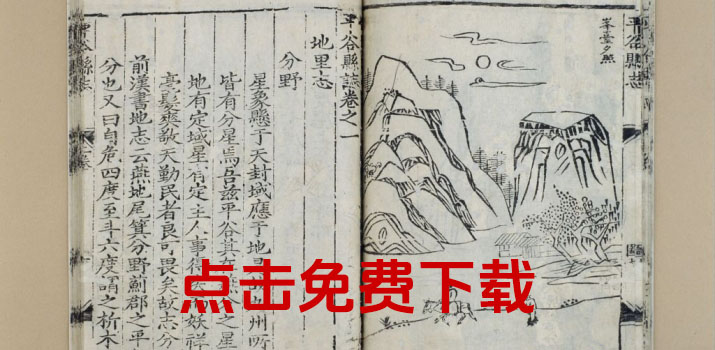 峯臺夕照
平谷縣志
平谷縣誌卷之一
地里志
分野
星象縣于天封域應于地
皆有分星焉吾茲平谷其
之星
地有定域星有定主人事得
妖祥
臺髮爽敬天勤民者良可畏矣故志分
前漢書地志云燕地尾箕分野薊郡之平
分也又曰自危四度至斗六度謂之析木
点击免费下载